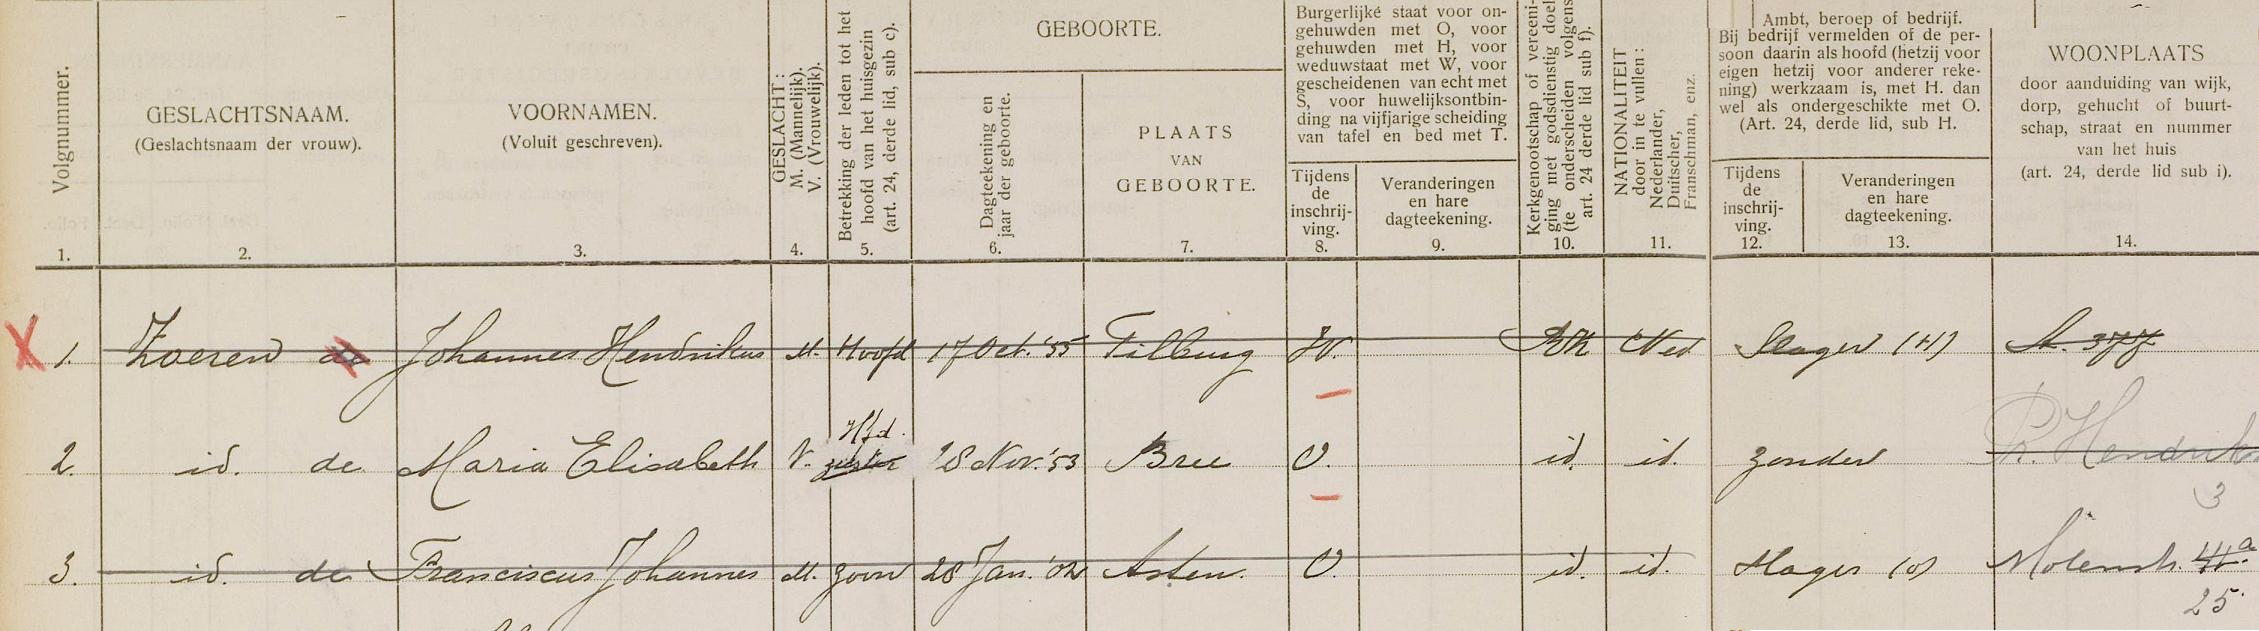 Volgnummer.
1.
GESLACHTSNAAM.
(Geslachtsnaam der vrouw).
2.
VOORNAMEN.
(Voluit geschreven).
3.
GESLACHT:
M. (Mannelijk).
V. (Vrouwelijk).
4.
Betrekking der leden tot het
hoofd van het huisgezin
(art. 24, derde lid, sub c).
5.
GEBOORTE.
Dagteekening en
jaar der geboorte.
6.
PLAATS
VAN
GEBOORTE.
7.
Burgerlijke staat voor on-
gehuwden met O, voor
gehuwden met H, voor
weduwstaat met W, voor
gescheidenen van echt met
S, voor huwelijksontbin-
ding na vijfjarige scheiding
van tafel en bed met T.
Tijdens
de
inschrij-
ving.
8.
Veranderingen
en hare
dagteekening.
9.
Kerkgenootschap of vereeni-
ging met godsdienstig doel
(te onderscheiden volgens
art. 24 derde lid sub f).
10.
NATIONALITEIT
door in te vullen:
Nederlander,
Duitscher,
Franschman, enz.
11.
Ambt, beroep of bedrijf.
Bij bedrijf vermelden of de per-
soon daarin als hoofd (hetzij voor
eigen hetzij voor anderer reke-
ning) werkzaam is, met H. dan
wel als ondergeschikte met O.
(Art. 24, derde lid, sub H.
Tijdens
de
inschrij-
ving.
12.
Veranderingen
en hare
dagteekening.
13.
WOONPLAATS
door aanduiding van wijk,
dorp, gehucht of buurt-
schap, straat en nummer
van het huis
(art. 24, derde lid sub i).
14.
1. Zoeren de Johannes Hendrikus M. Hoofd 17 Oct. '55 Tilburg W. RK Ned Slager (H) A. 377
Hfd.
2. id. de Maria Elisabeth V. zuster 28 Nov. '53 Bree O. id. id. zonder Pr. Hendrik
3
3. id. de Franciscus Johannes M. zoon 28 Jan. '02 Asten. O. id. id. Slager (o) Molenstr.
25.